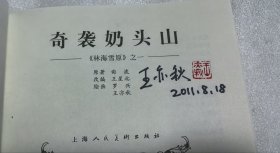 奇袭奶头山
《林海雪原》之一
原著 曲波
改编 王星北
绘画 罗兴
王亦秋
王亦秋
2011.8.18
上海人民美术出版社